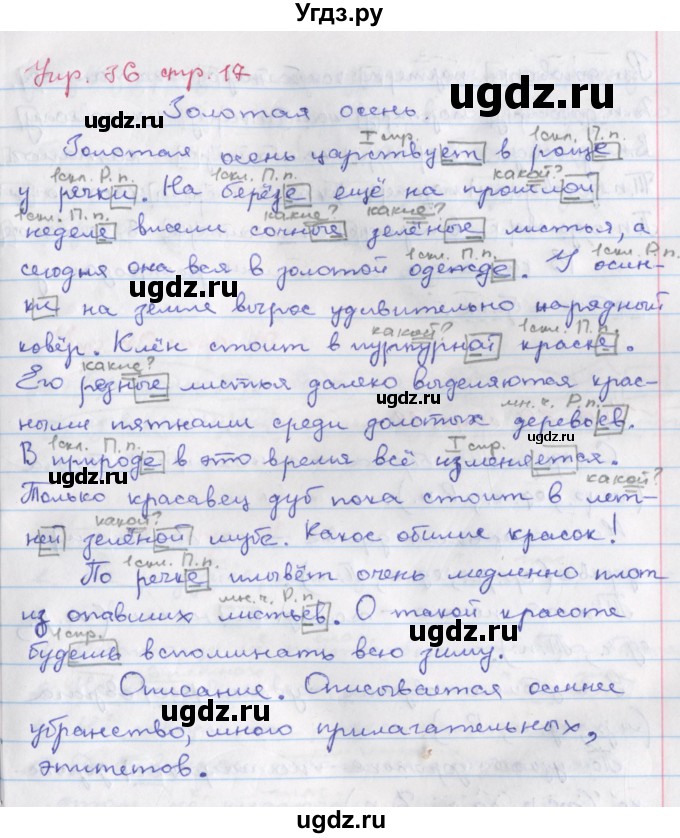 Угдз.ру
Упр. 36 стр. 17 ugdz.ru
Золотая осень.
I спр. 1скл. П.п.
Золотая осень царствует в роще
1скл. Р.п. 1скл. П.п. какой?
у речки. На берёзе ещё на прошлой
1скл. П.п. какие? какие?
неделе висели сочные зелёные листья, а
1скл. П.п. 1скл. Р.п.
сегодня она вся в золотой одежде. У осин-
ки на земле вырос удивительно нарядный
какой? 1скл. П.п.
ковёр. Клён стоит в пурпурной краске.
какие?
Его резные листья далеко выделяются крас-
мн.ч. Р.п.
ными пятнами среди золотых деревьев.
1скл. П.п. I спр.
В природе в это время всё изменяется.
какой?
Только красавец дуб пока стоит в лет-
какой?
ней зелёной шубе. Какое обилие красок!
1скл. П.п.
По речке плывёт очень медленно плот
мн.ч. Р.п.
из опавших листьев. О такой красоте
1 спр.
будешь вспоминать всю зиму.
Описание. Описывается осеннее
убранство, много прилагательных,
эпитетов.
ugdz.ru
ugdz.ru
ugdz.ru
ugdz.ru
ugdz.ru
ugdz.ru
ugdz.ru
ugdz.ru
ugdz.ru
ugdz.ru
ugdz.ru
ugdz.ru
ugdz.ru
ugdz.ru